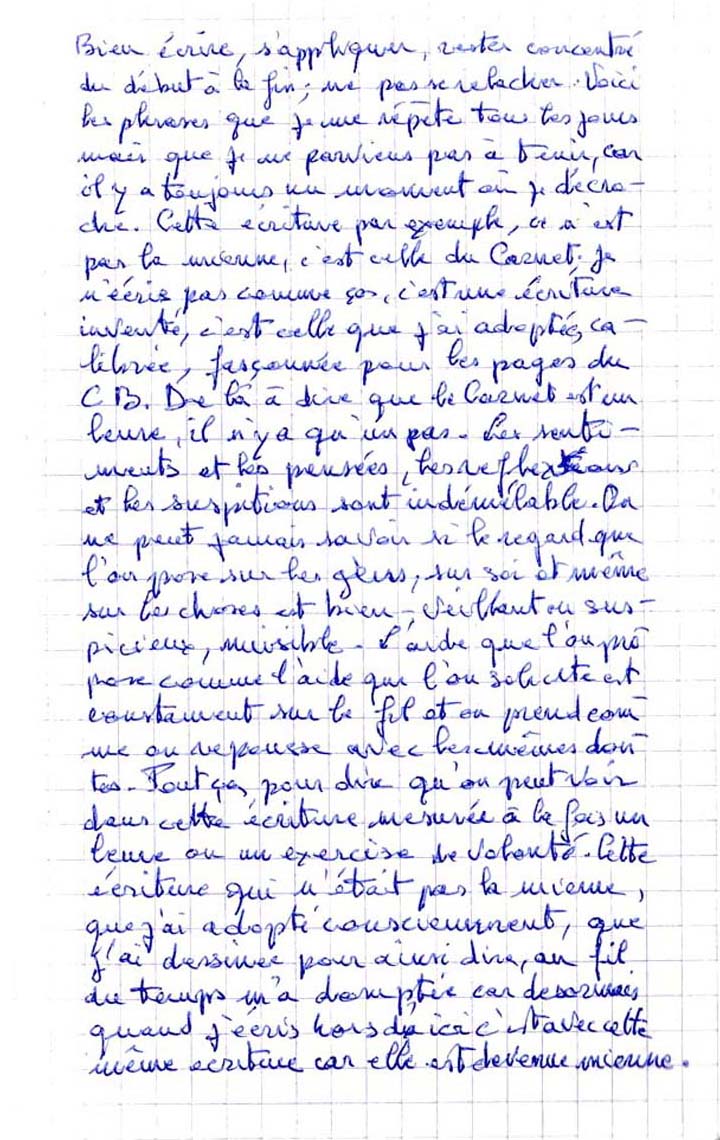 Bien écrire, s'appliquer, rester concentré
du début à la fin; ne pas se relacher. Voici
les phrases que je me répète tous les jours
mais que je ne parviens pas à tenir, car
il y a toujours un moment où je décro-
che. Cette écriture par exemple, ce n'est
pas la mienne, c'est celle du Carnet. Je
n'écris pas comme ça, c'est une écriture
inventé, c'est celle que j'ai adoptée, ca-
librée, fasçonnée pour les pages du
CB. De là à dire que le Carnet est un
leurre, il n'y a qu'un pas. Les senti-
ments et les pensées, les reflexions
et les suspitions sont indémêlable. On
ne peut jamais savoir si le regard que
l'on pose sur les gens, sur soi et même
sur les choses est bien-veillant ou sus-
picieux, nuisible. L'aide que l'on pro
pose comme l'aide que l'on solicite est
constament sur le fil et on prend com
me on repousse avec les mêmes dou
tes. Tout ça, pour dire qu'on peut voir
dans cette écriture mesurée à la fois un
leurre ou un exercise de volonté. Cette
écriture qui n'était pas la mienne,
que j'ai adopté consciemment, que
j'ai dessinée pour ainsi dire, au fil
du temps m'a domptée car desormais
quand j'écris hors d'ici c'est avec cette
même ecriture car elle est devenue mienne.